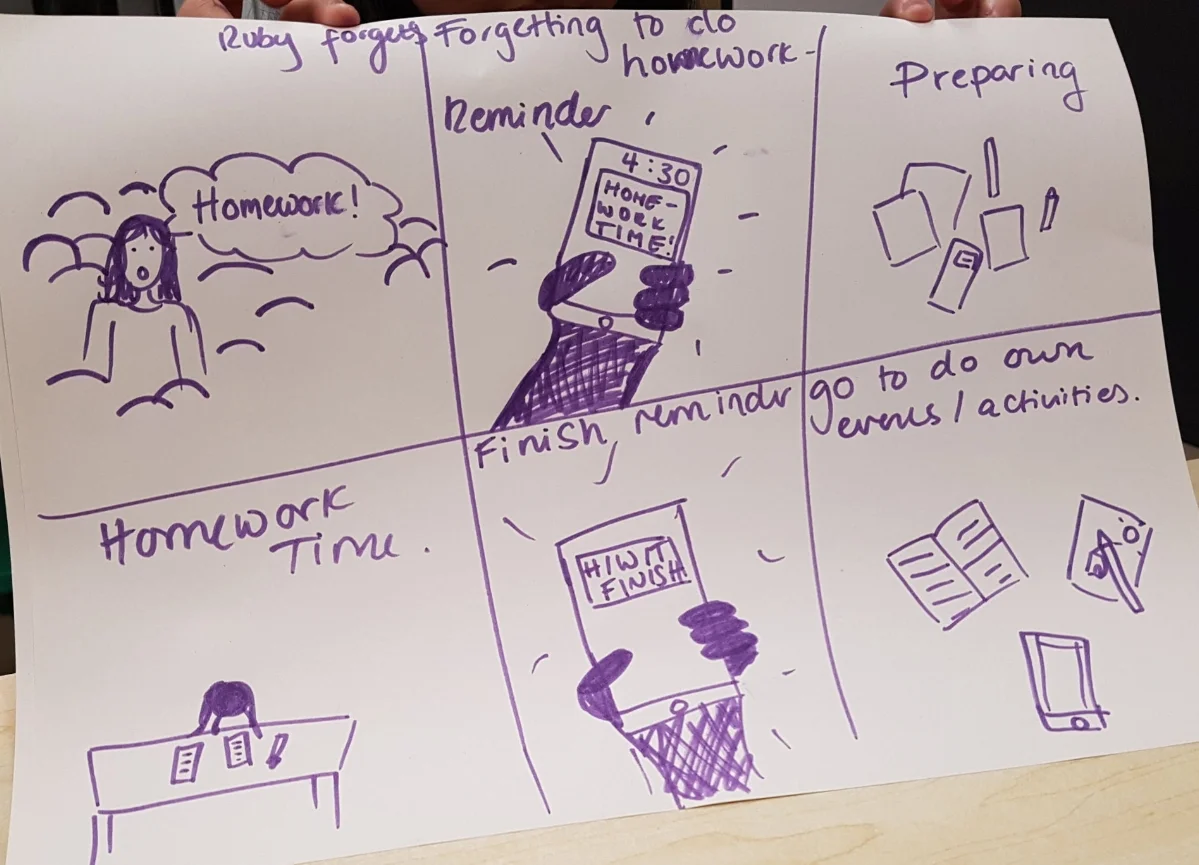 Ruby forgets Forgetting to do
homework-
Homework!
Reminder
4:30
HOME-
WORK
TIME!
Preparing
Homework
Time.
Finish, reminder
H/W IT
FINISH!
go to do own
evenes / activities.